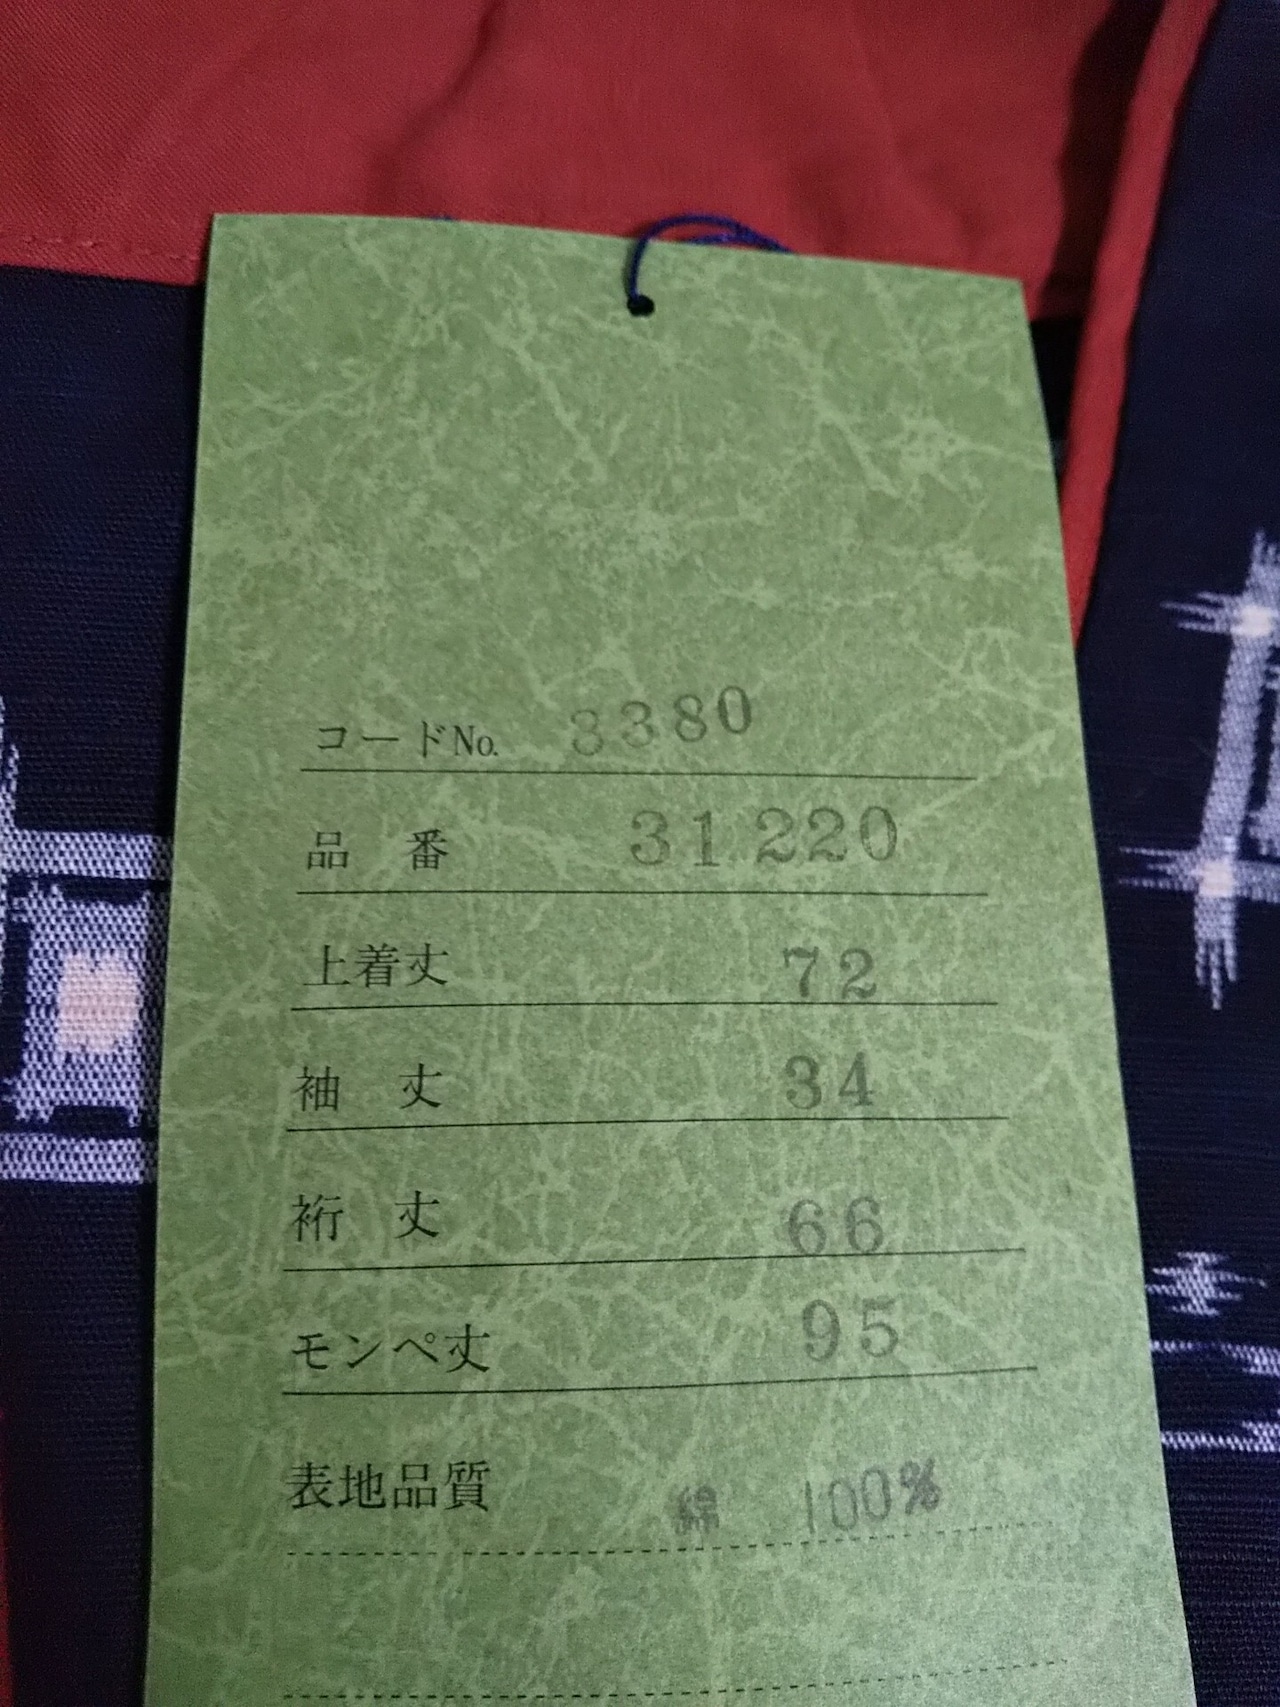 コードNo. 3380
品番 31220
上着丈 72
袖丈 34
裄丈 66
モンペ丈 95
表地品質 綿 100%